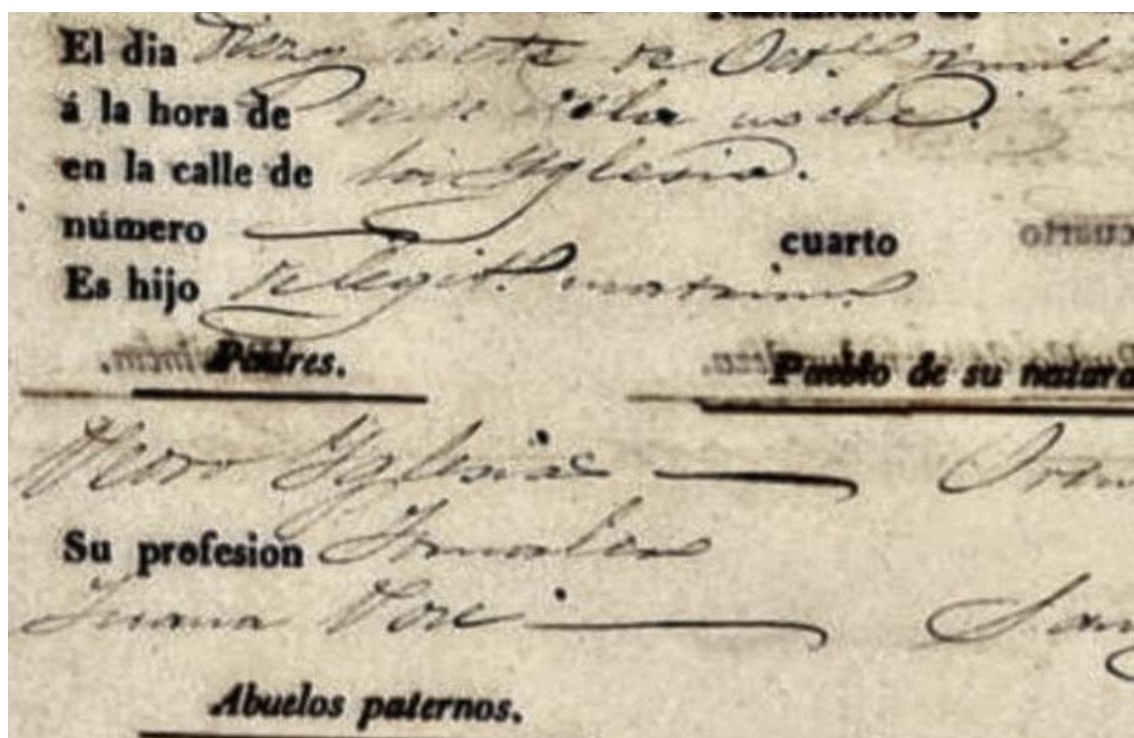 El dia Diez y siete de Oct.e de mil
á la hora de once de la noche.
en la calle de la Yglesia.
número cuarto
Es hijo de legit.o matrim.o
Padres. Pueblo de su natura
Yglesias
Su profesion Jornalero
Juana
Abuelos paternos.